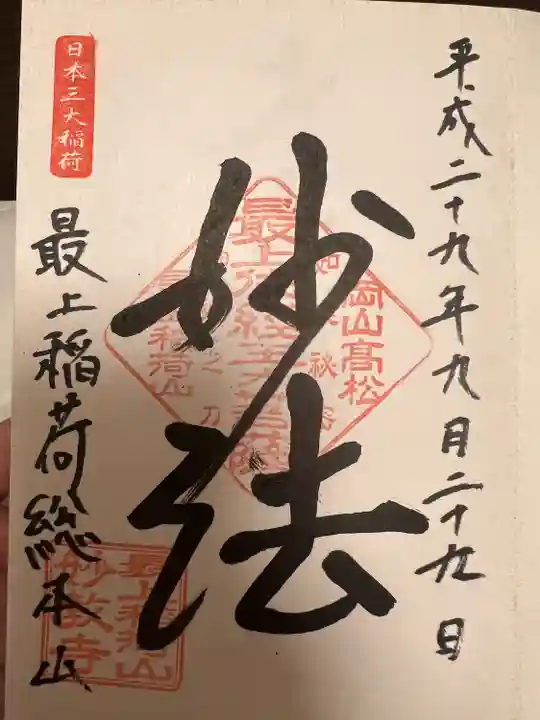 平成二十九年九月二十九日
岡山高松
最上位経王大菩薩
妙法
日本三大稲荷
最上稲荷総本山
最上稲荷山
妙教寺